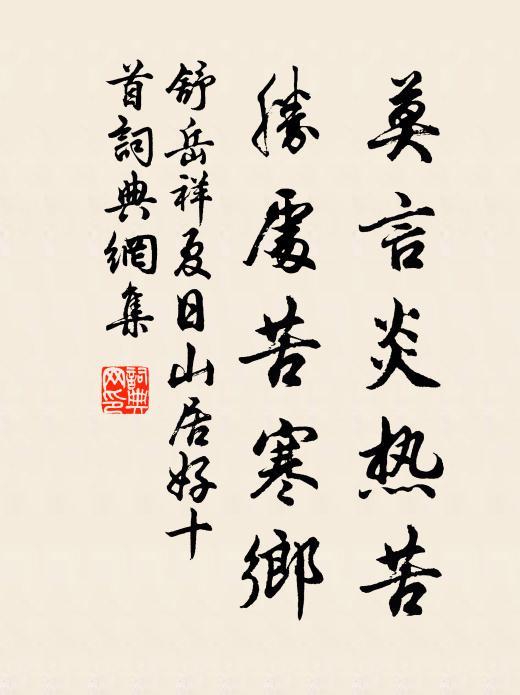 莫言炎热苦
勝處苦寒鄉
舒岳祥夏日山居好十
首詞典網集
詞典網印